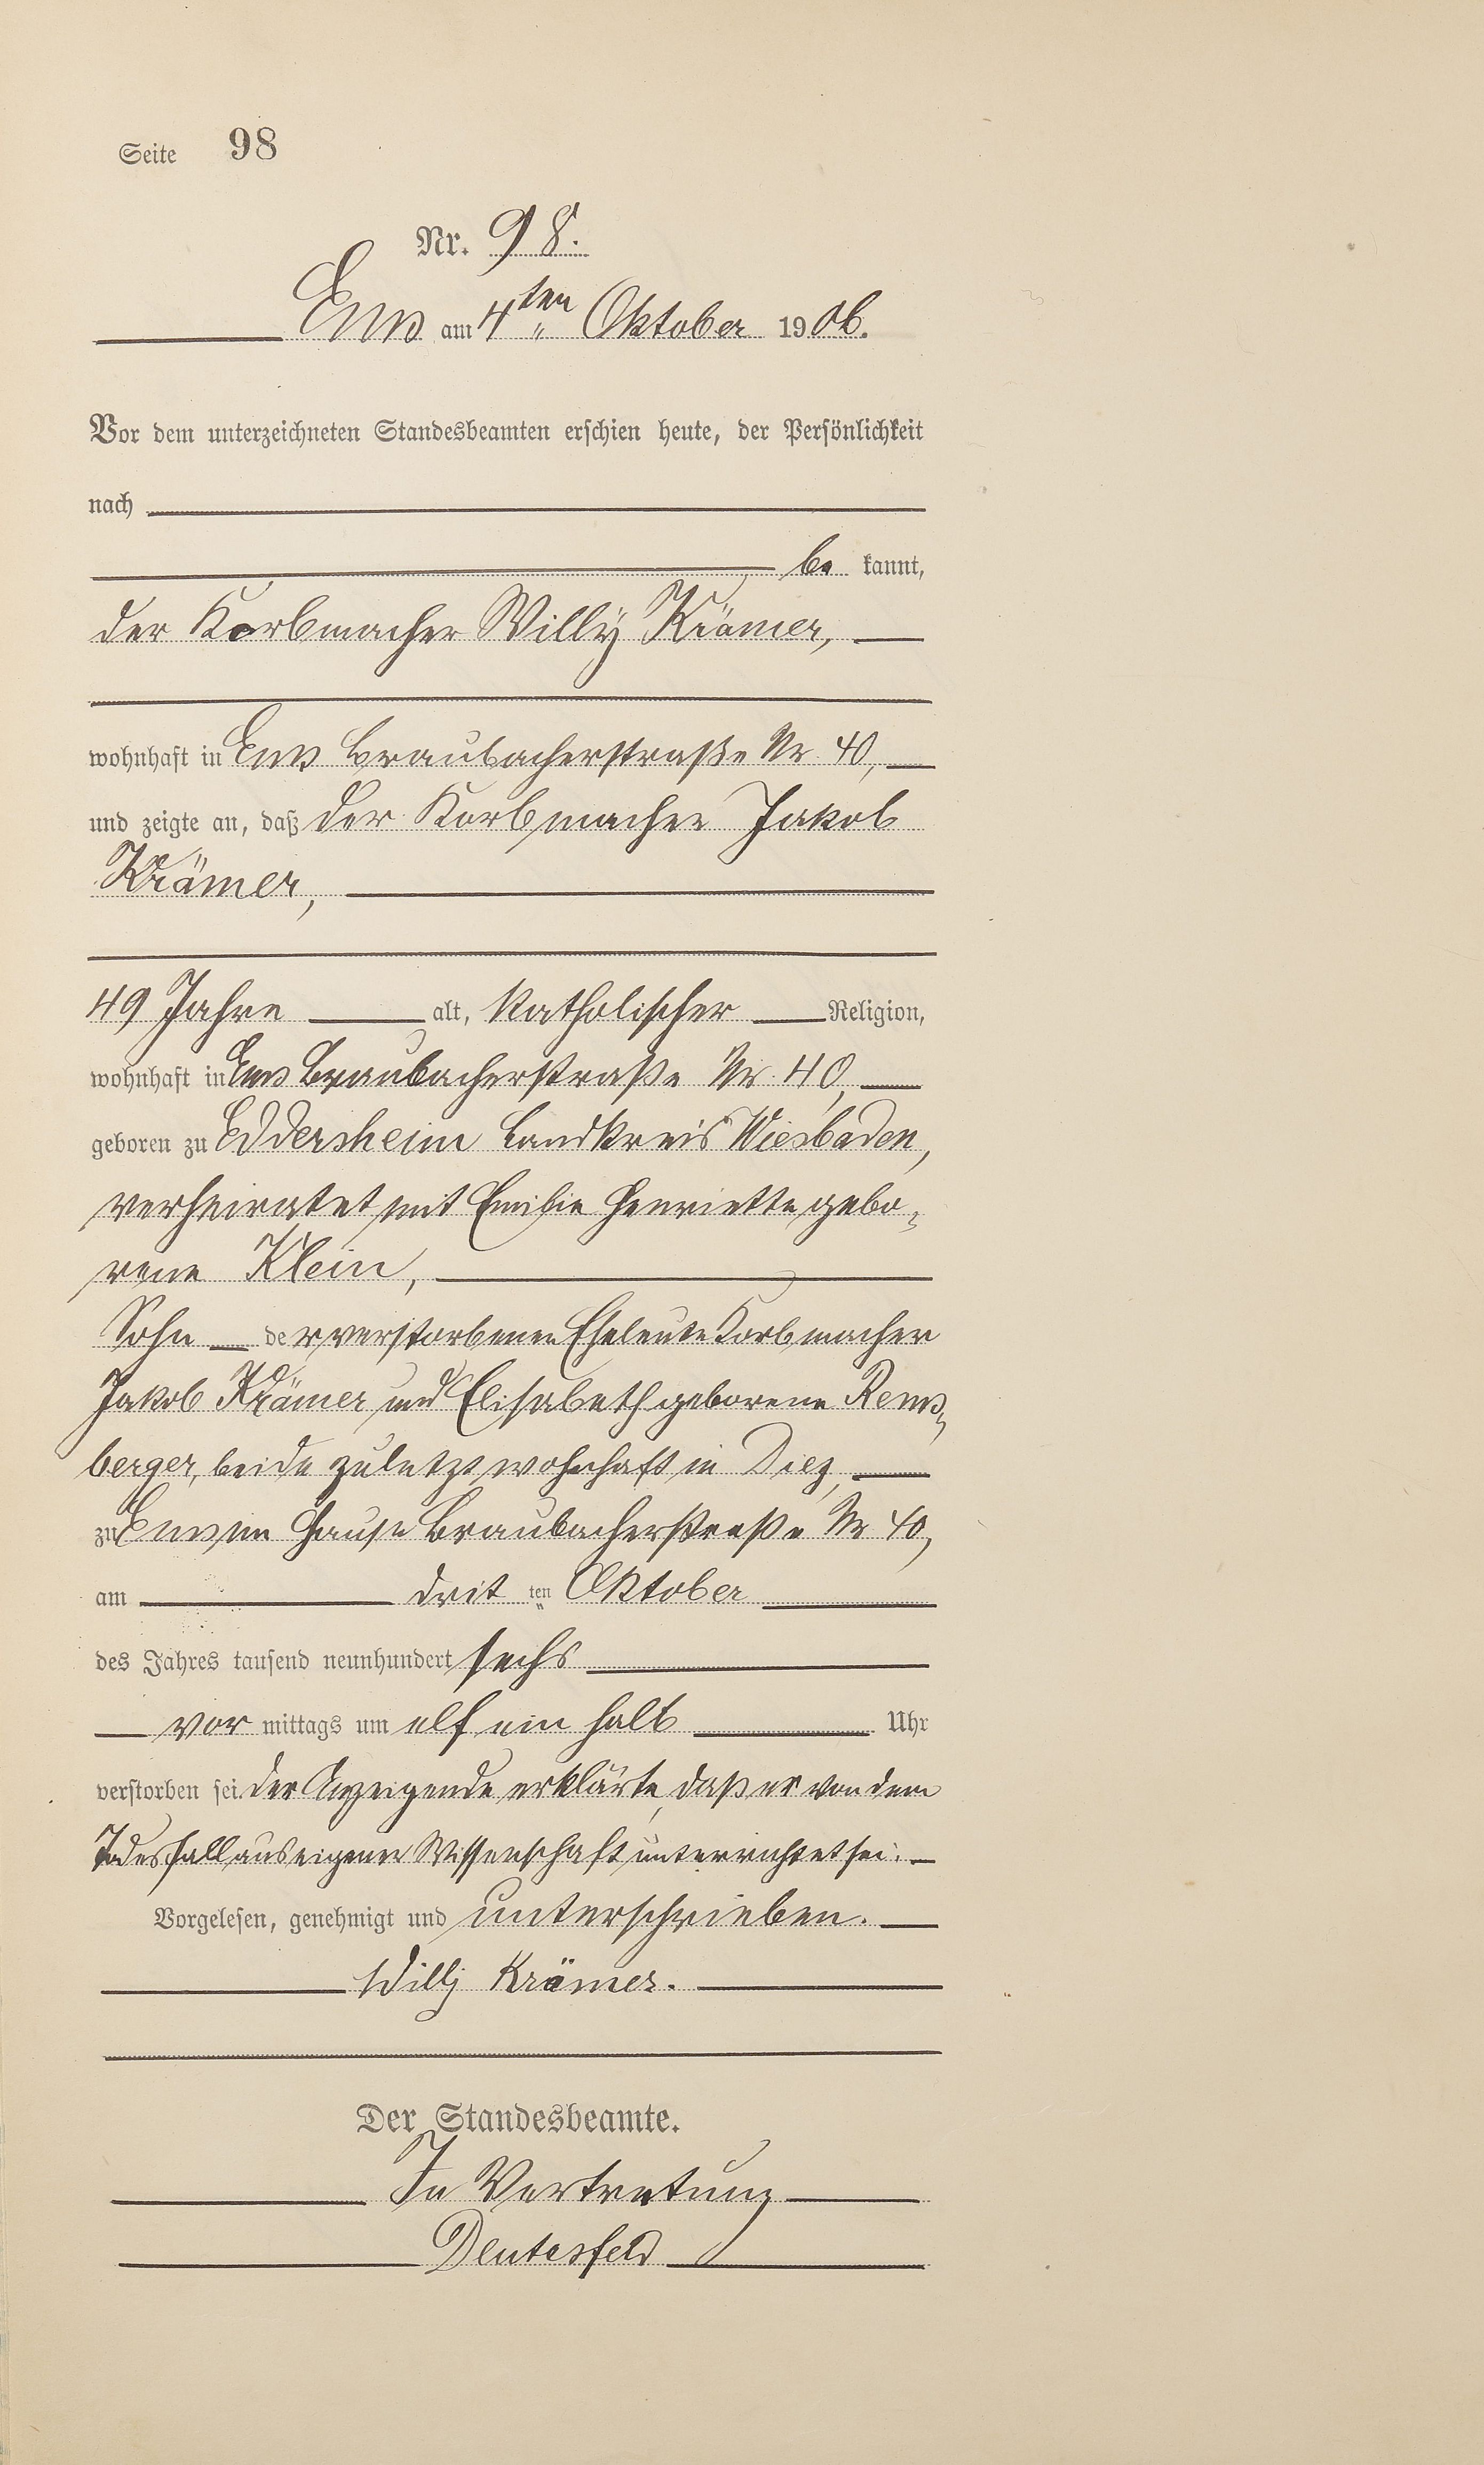 Seite 98
Nr. 98.
Ems am 4ten Oktober 1906.
Vor dem unterzeichneten Standesbeamten erschien heute, der Persönlichkeit
nach
be kannt,
der Korbmacher Willy Krämer,
wohnhaft in Ems Braubacherstraße Nr. 40,
und zeigte an, daß der Korbmacher Jakob
Krämer,
49 Jahre alt, katholischer Religion,
wohnhaft in Ems Braubacherstraße Nr. 40,
geboren zu Eddersheim Landkreis Wiesbaden,
verheiratet mit Emilie Henriette gebo-
rene Klein,
Sohn der verstorbenen Eheleute Korbmacher
Jakob Krämer und Elisabeth geborene Rems-
berger, beide zuletzt wohnhaft in Diez,
zu Ems im Hause Braubacherstraße Nr 40,
am drit ten Oktober
des Jahres tausend neunhundert sechs
vor mittags um elf ein halb Uhr
verstorben sei. Der Anzeigende erklärte, daß er von dem
Todesfall aus eigener Wissenschaft unterrichtet sei.
Vorgelesen, genehmigt und unterschrieben.
Willy Krämer.
Der Standesbeamte.
In Vertretung
Deutesfeld